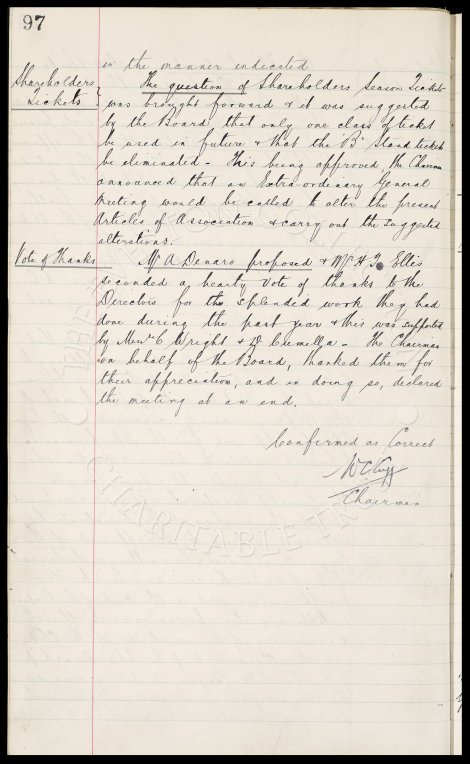 97
in the manner indicated
Shareholders Tickets } The question of Shareholders Season Tickets
was brought forward & it was suggested
by the Board that only one class of ticket
be used in future & that the "B" Stand tickets
be eliminated - This being approved, the Chairman
announced that an Extra ordinary General
Meeting would be called to alter the present
Articles of Association & carry out the suggested
alterations.
Vote of Thanks Mr A Denaro proposed & Mr H. J. Ellis
seconded a hearty vote of thanks to the
Directors for the splended work they had
done during the past year & this was supported
by Messrs C Wright & Cumella - The Chairman
on behalf of the Board, thanked them for
their appreciation, and in doing so, declared
the meeting at an end.
Confirmed as Correct
W C Cuff
Chairman
CHARITABLE